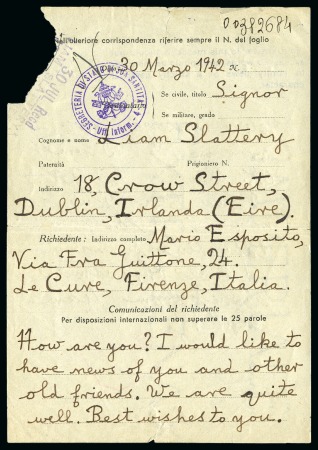 00392684
dell'ulteriore corrispondenza riferire sempre il N. del foglio
30 JUL Rec'd
30 Marzo 1942 x
SEGRETERIA DI STATO DI SUA SANTITÀ - Uff. Inform. - 4
Se civile, titolo Signor
Se militare, grado
Cognome e nome Liam Slattery
Paternità Prigioniero N.
Indirizzo 18, Crow Street,
Dublin, Irlanda (Eire).
Richiedente: Indirizzo completo Mario Esposito,
Via Fra Guittone, 24.
Le Cure, Firenze, Italia.
Comunicazioni del richiedente
Per disposizioni internazionali non superare le 25 parole
How are you? I would like to
have news of you and other
old friends. We are quite
well. Best wishes to you.